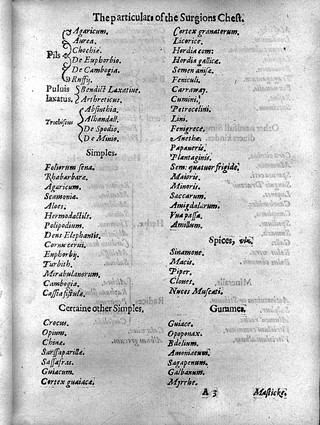 The particulars of the Surgions Chest.
Pils
Agaricum.
Aurea.
Chochiæ.
De Euphorbio.
De Cambogia.
Ruffij.
Puluis laxatus.
Benedict Laxatiue.
Arthreticus.
Trochiscus
Absinthia.
Alhandall.
De Spodio.
De Minio.
Simples.
Foliorum sena.
Rhabarbaræ.
Agaricum.
Scamonia.
Aloes.
Hermodactils.
Polipodium.
Dens Elephantis.
Cornu cerui.
Euphorbij.
Turbith.
Mirabulanorum.
Cambogia.
Cassia fistula.
Certaine other Simples,
Crocus.
Opium.
China.
Sarssaparilla.
Sassafras.
Guiacum.
Cortex guaiaca.
Cortex granatorum.
Licorice.
Hordia com:
Hordia gallica.
Semen anise.
Feniculi.
Carraway.
Cumini.
Petrocelini.
Lini.
Fenigrece.
Anethæ.
Papaveris.
Plantaginis.
Sem: quatuor frigide.
Maioris.
Minoris.
Saccarum.
Amigdalarum.
Vua passa.
Amillum.
Spices, viz.
Sinamone.
Macis.
Piper.
Cloues.
Nuces Muscati.
Gummes.
Guiace.
Opoponax.
Bdelium.
Amoniacum.
Sagapenum.
Galbanum.
Myrrhe.
A 3
Masticke.